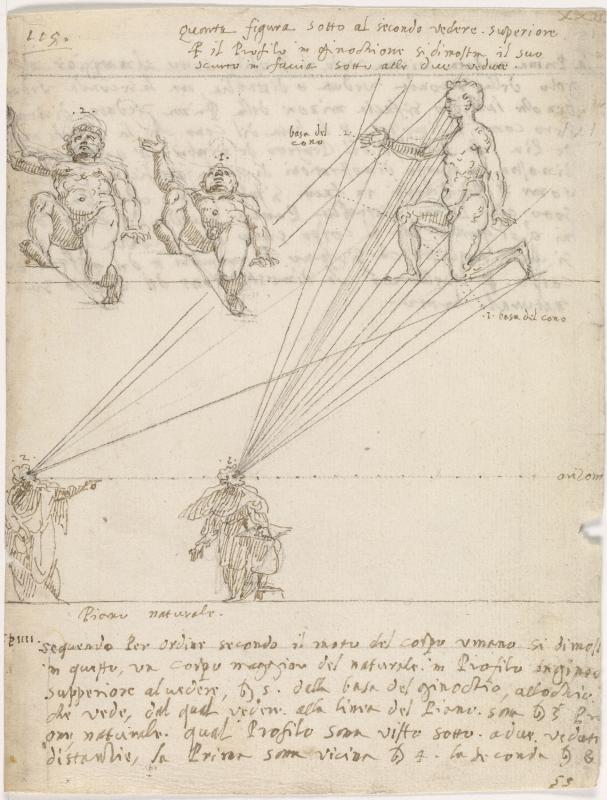 115.
Quarta figura sotto al secondo vedere superiore
il Profilo in ginochione si dimostra il suo
scurto in faccia sotto alle due vedute
.2.
.1.
basa del
cono
2.
.1. basa del cono
.2.
.1.
orizom
Piano naturale.
sequendo Per ordine secondo il moto del corpo umano si dimost
in questo, un corpo maggior del naturale in Profilo inginoc
supperiore al vedere, 5. della basa del ginochio, allochio
che vede, dal qual vedere alla linea del Piano. sono
one naturale. qual Profilo sara visto sotto a due vedute
distantie, la Prima sara vicina 4. la seconda 8
55